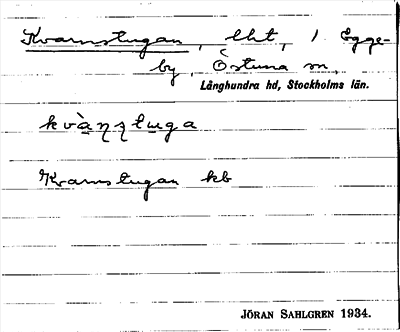 Kvarnstugan, lht, 1 Egge-
by, Östuna sn,
Långhundra hd, Stockholms län.
kvàɳʂtuga
Kvarnstugan kb
JÖRAN SAHLGREN 1934.